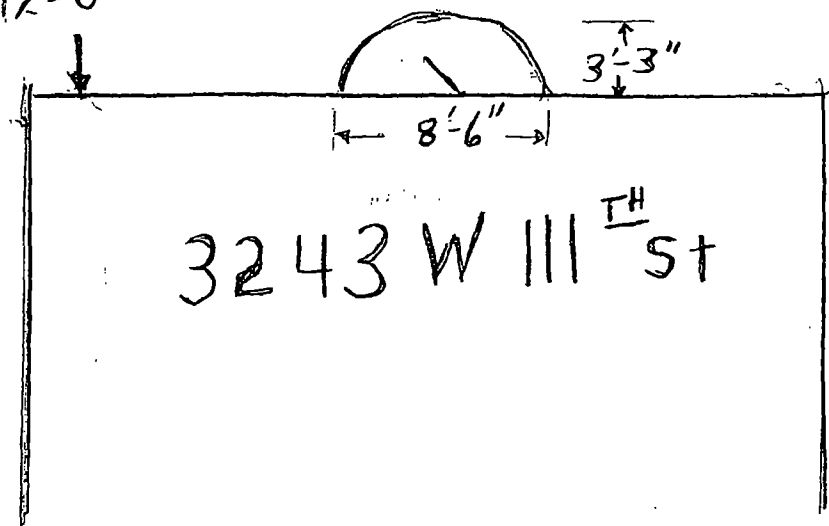 3'-3"
8'-6"
3243 W 111TH St